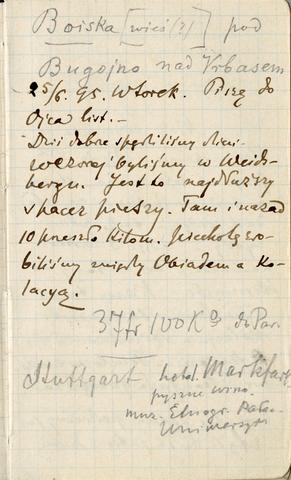 Boiska [wieś (?)] pod
Bugojno nad Vrbasem
25/6. 95. Wtorek. Piszę do
Ojca list. —
Dziś dobrze spędziliśmy dzień.
wczoraj byliśmy w Weids-
bergu. Jest to najdłuższy
spacer pieszy. Tam i nazad
10 przeszło Kilom. piechotą zro-
biliśmy między Obiadem a Ko-
lacyą.
37 fr 100 Kg do Par.
Stuttgart hotel Markfart
pyszne wino
muz. Etnogr. Pała.
Uniwersyt